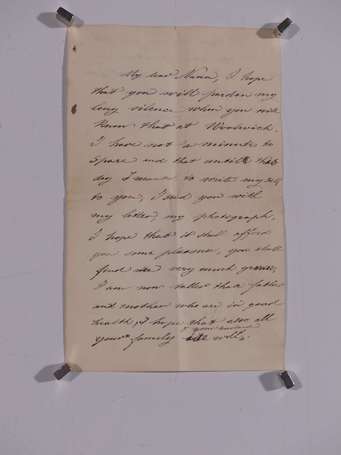 My dear Nana, I hope
that you will pardon my
long silence when you will
know that at Woolwich
I have not a minute to
spare and that untill this
day I meant to write my self
to you, I send you with
my letter, my photograph,
I hope that it shall afford
you some pleasure, you shall
find me very much grown,
I am now taller than father
and mother who are in good
health, I hope that also all
your family + your husband
well.